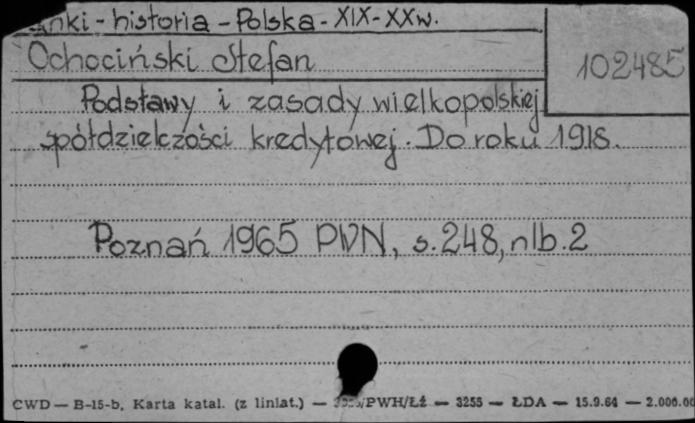 nki - historia - Polska - XIX-XX w.
Ochociński Stefan
102485
Podstawy i zasady wielkopolskiej
spółdzielczości kredytowej. Do roku 1918.
Poznań 1965 PWN, s. 248, nlb. 2
CWD — B-15-b, Karta katal. (z liniat.) — /PWH/Łż — 3255 — ŁDA — 15.9.64 — 2.000.00